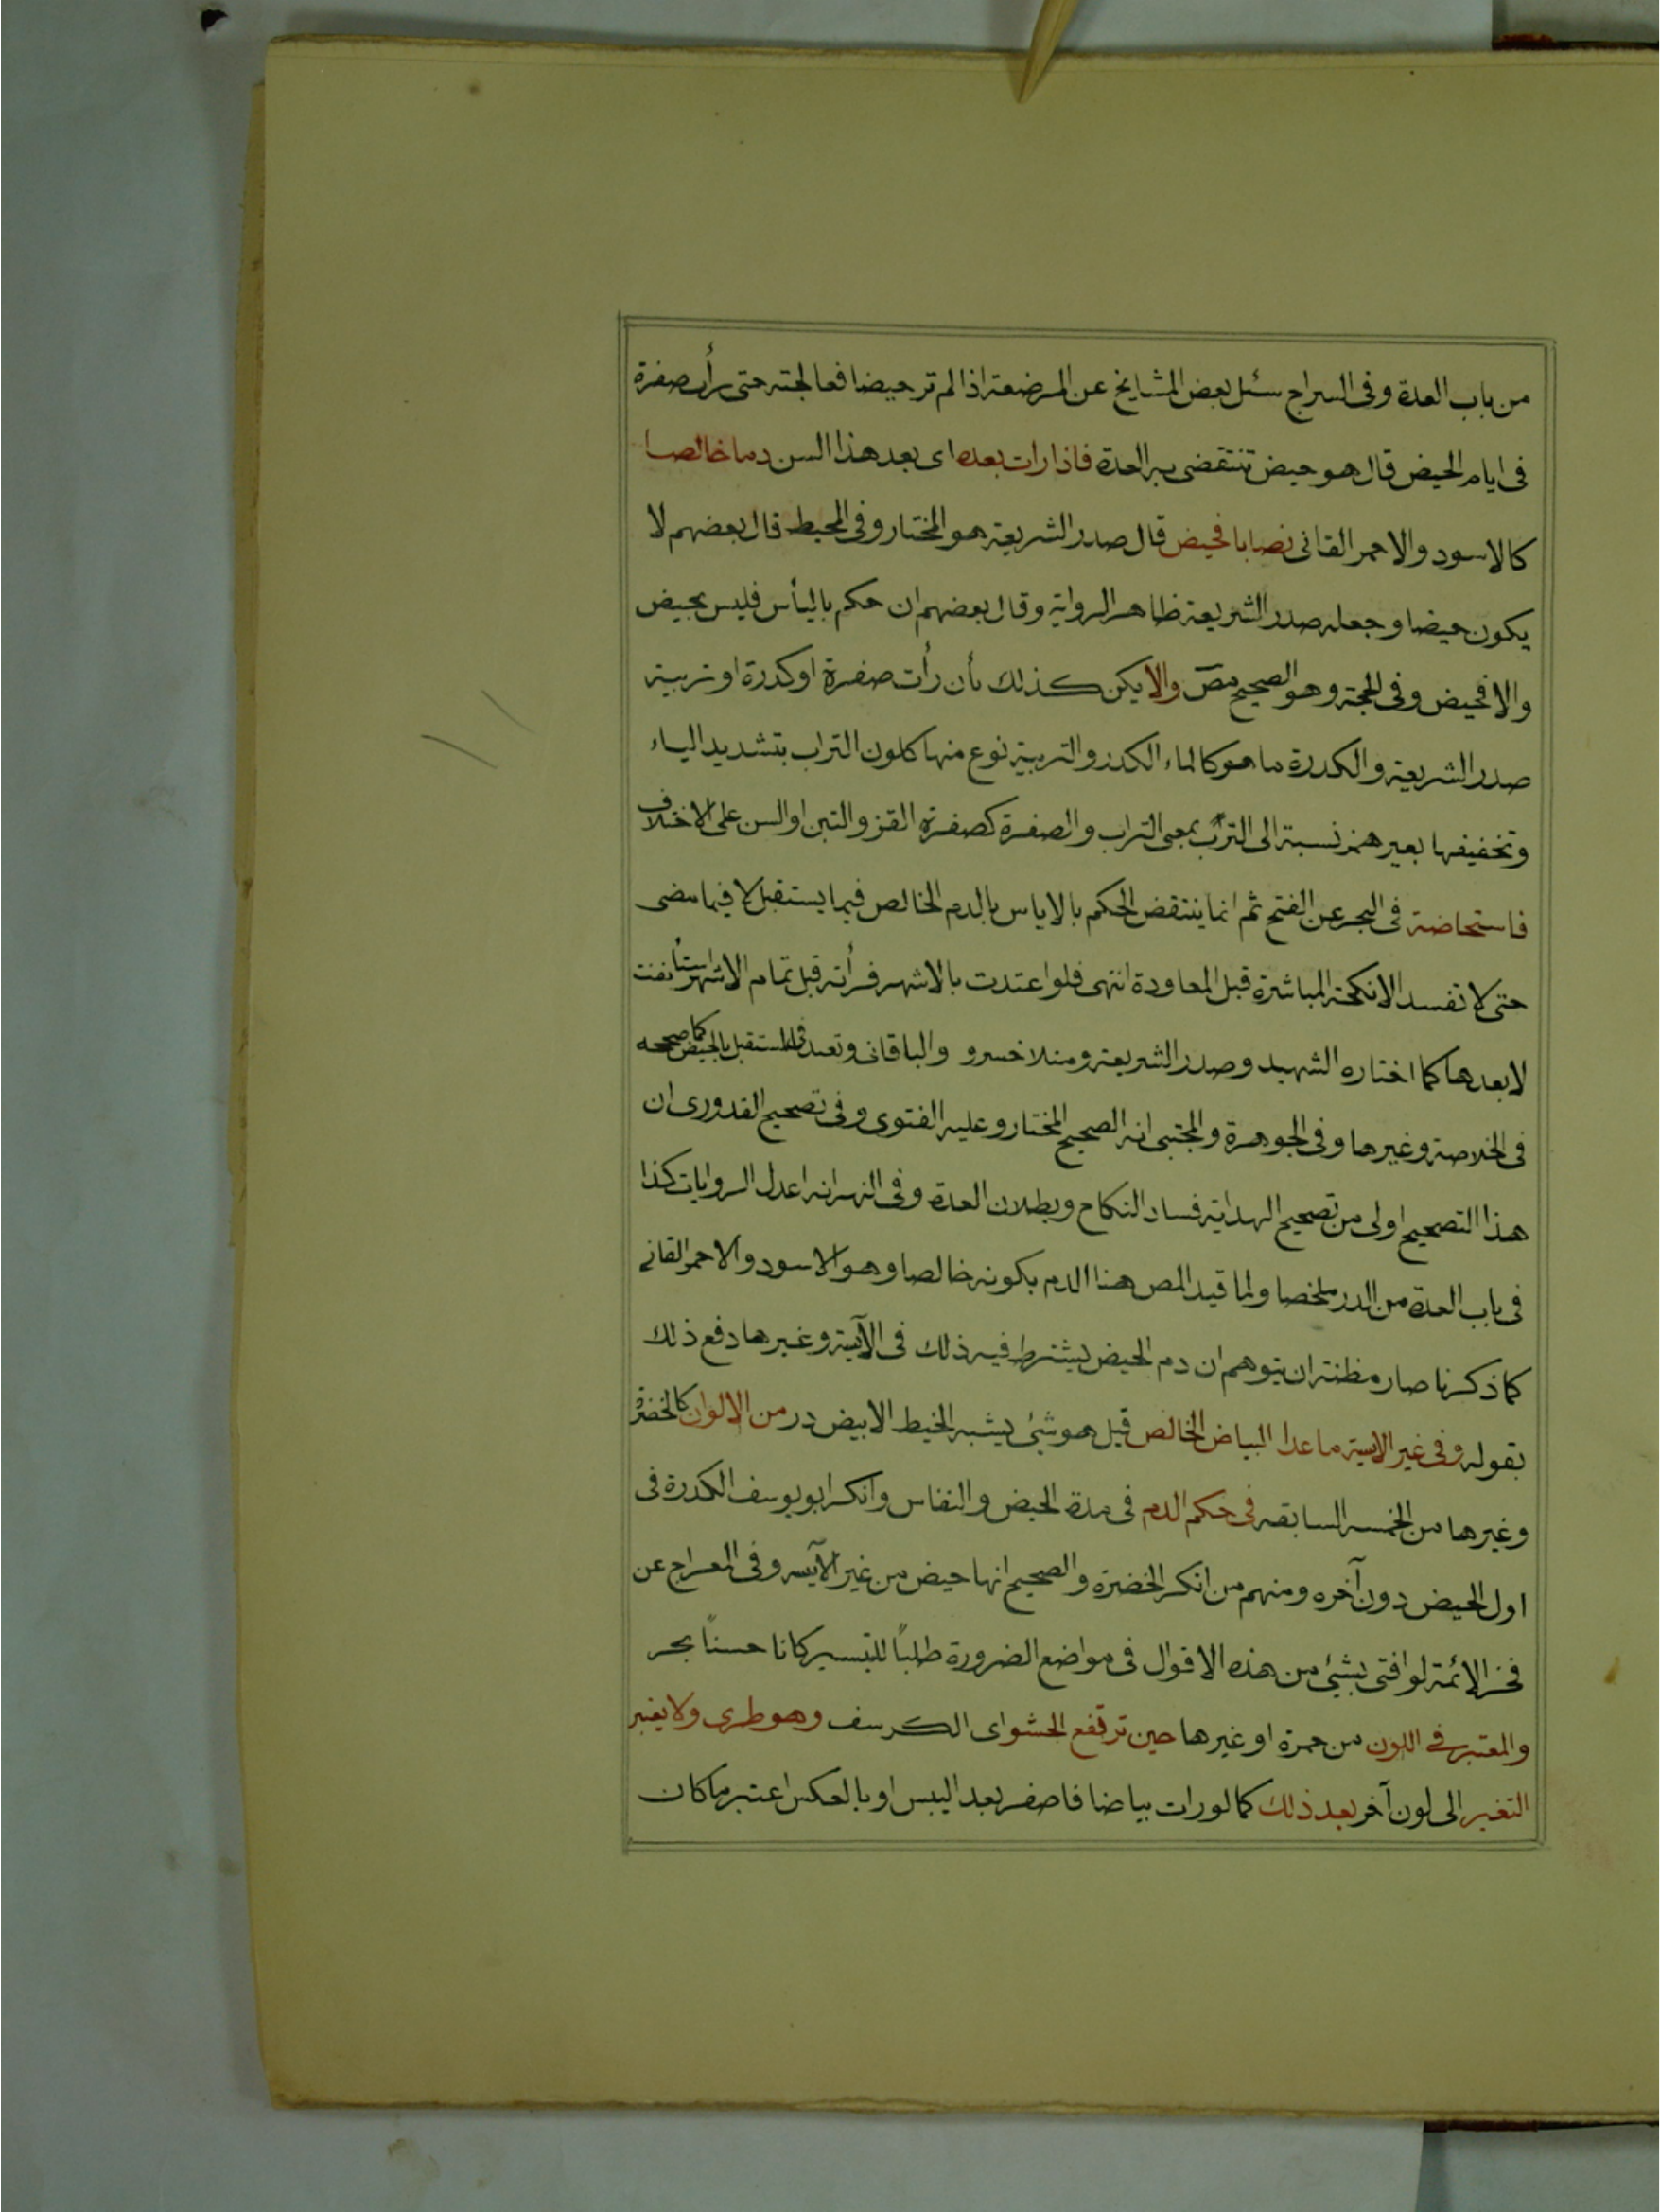 من باب العدة وفى السراج سئل بعض المشايخ عن المرضعة اذا لم تر حيضا فعالجته حتى رأت صفرة
فى ايام الحيض قال هو حيض تنقضى به العدة فاذا رات بعده اى بعد هذا السن دما خالصا
كالاسود والاحمر القانى نصابا فحيض قال صدر الشريعة هو المختار وفى المحيط قال بعضهم لا
يكون حيضا وجعله صدر الشريعة ظاهر الرواية وقال بعضهم ان حكم باليأس فليس بحيض
والا فحيض وفى الحجة وهو الصحيح مص والا يكن كذلك بأن رأت صفرة او كدرة او تربية
صدر الشريعة والكدرة ما هو كالماء الكدر والتربية نوع منها كلون التراب بتشديد الياء
وتخفيفها بغير همز نسبة الى الترب بمعنى التراب والصفرة كصفرة القز والتبن او السن على الاختلاف
فاستحاضة فى البحر عن الفتح ثم انما ينتقض الحكم بالاياس بالدم الخالص فيما يستقبل لا فيما مضى
حتى لا تفسد الانكحة المباشرة قبل المعاودة انتهى فلو اعتدت بالاشهر فرأته قبل تمام الاشهر استأنفت
لا بعدها كما اختاره الشهيد وصدر الشريعة ومنلا خسرو والباقانى وتعتد فى المستقبل بالحيض كما صححه
فى الخلاصة وغيرها وفى الجوهرة والمجتبى انه الصحيح المختار وعليه الفتوى وفى تصحيح القدورى ان
هذا التصحيح اولى من تصحيح الهداية فساد النكاح وبطلان العدة وفى النهر انه اعدل الروايات كذا
فى باب العدة من الدر ملخصا ولما قيد المص هنا الدم بكونه خالصا وهو الاسود والاحمر القانى
كما ذكرنا صار مظنة ان يتوهم ان دم الحيض يشترط فيه ذلك فى الآيسة وغيرها دفع ذلك
بقوله وفى غير الايسة ما عدا البياض الخالص قيل هو شئ يشبه الخيط الابيض درر من الالوان كالخضرة
وغيرها من الخمسه السابقه فى حكم الدم فى مدة الحيض والنفاس وانكر ابو يوسف الكدرة فى
اول الحيض دون آخره ومنهم من انكر الخضرة والصحيح انها حيض من غير الآيسه وفى المعراج عن
فخر الائمة لو افتى بشئ من هذه الاقوال فى مواضع الضرورة طلبًا للتيسير كانا حسنًا بحر
والمعتبر فى اللون من حمرة او غيرها حين ترفع الحشو اى الكرسف وهو طرى ولا يعتبر
التغير الى لون آخر بعد ذلك كما لو رات بياضا فاصفر بعد اليبس او بالعكس اعتبر ما كان